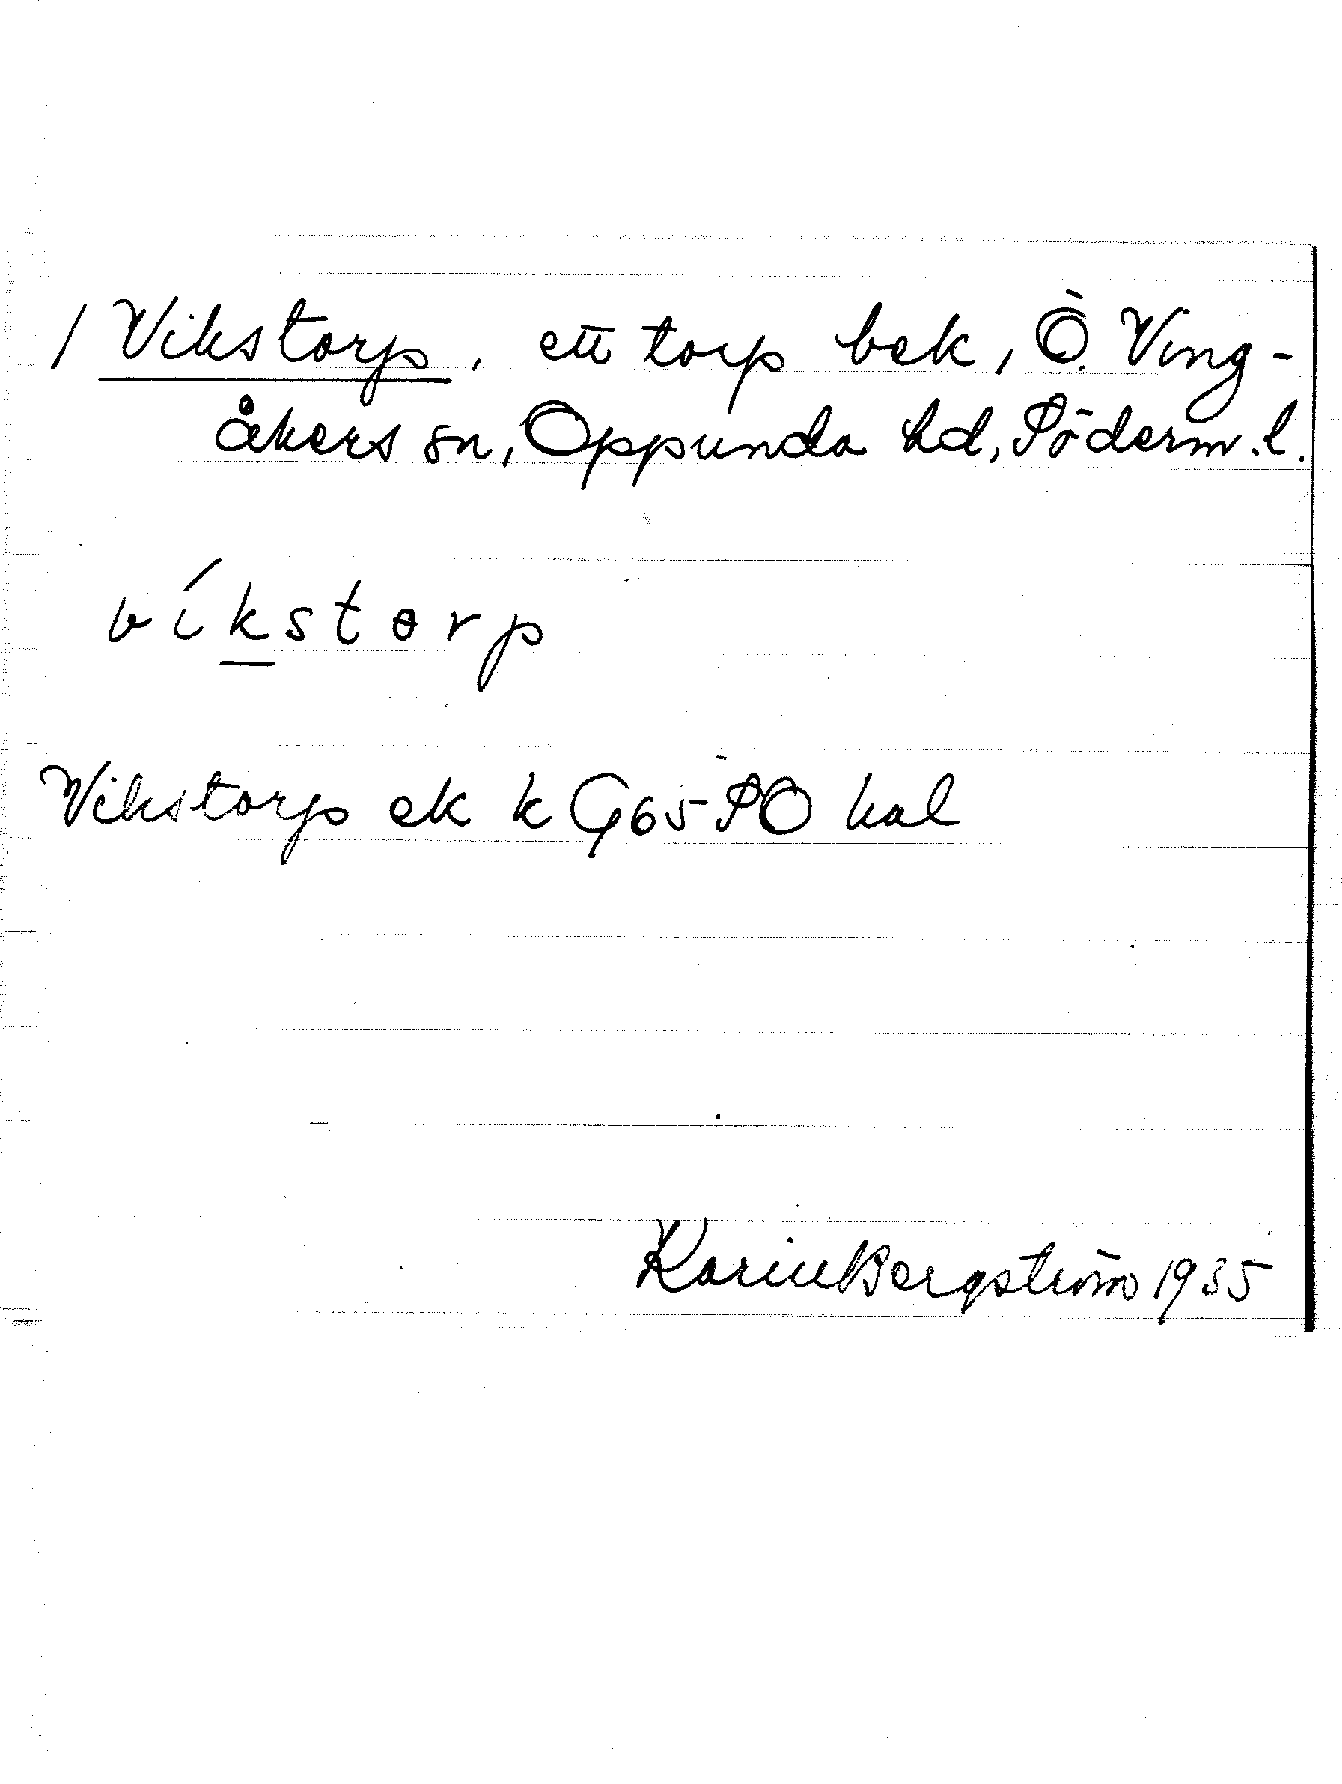 / Vikstorp, ett torp bek, Ö. Ving-
åkers sn, Oppunda hd, Söderm. l.
víkstɵrp
Vikstorp ek k G65 SO kal
Karin Bergström 1935